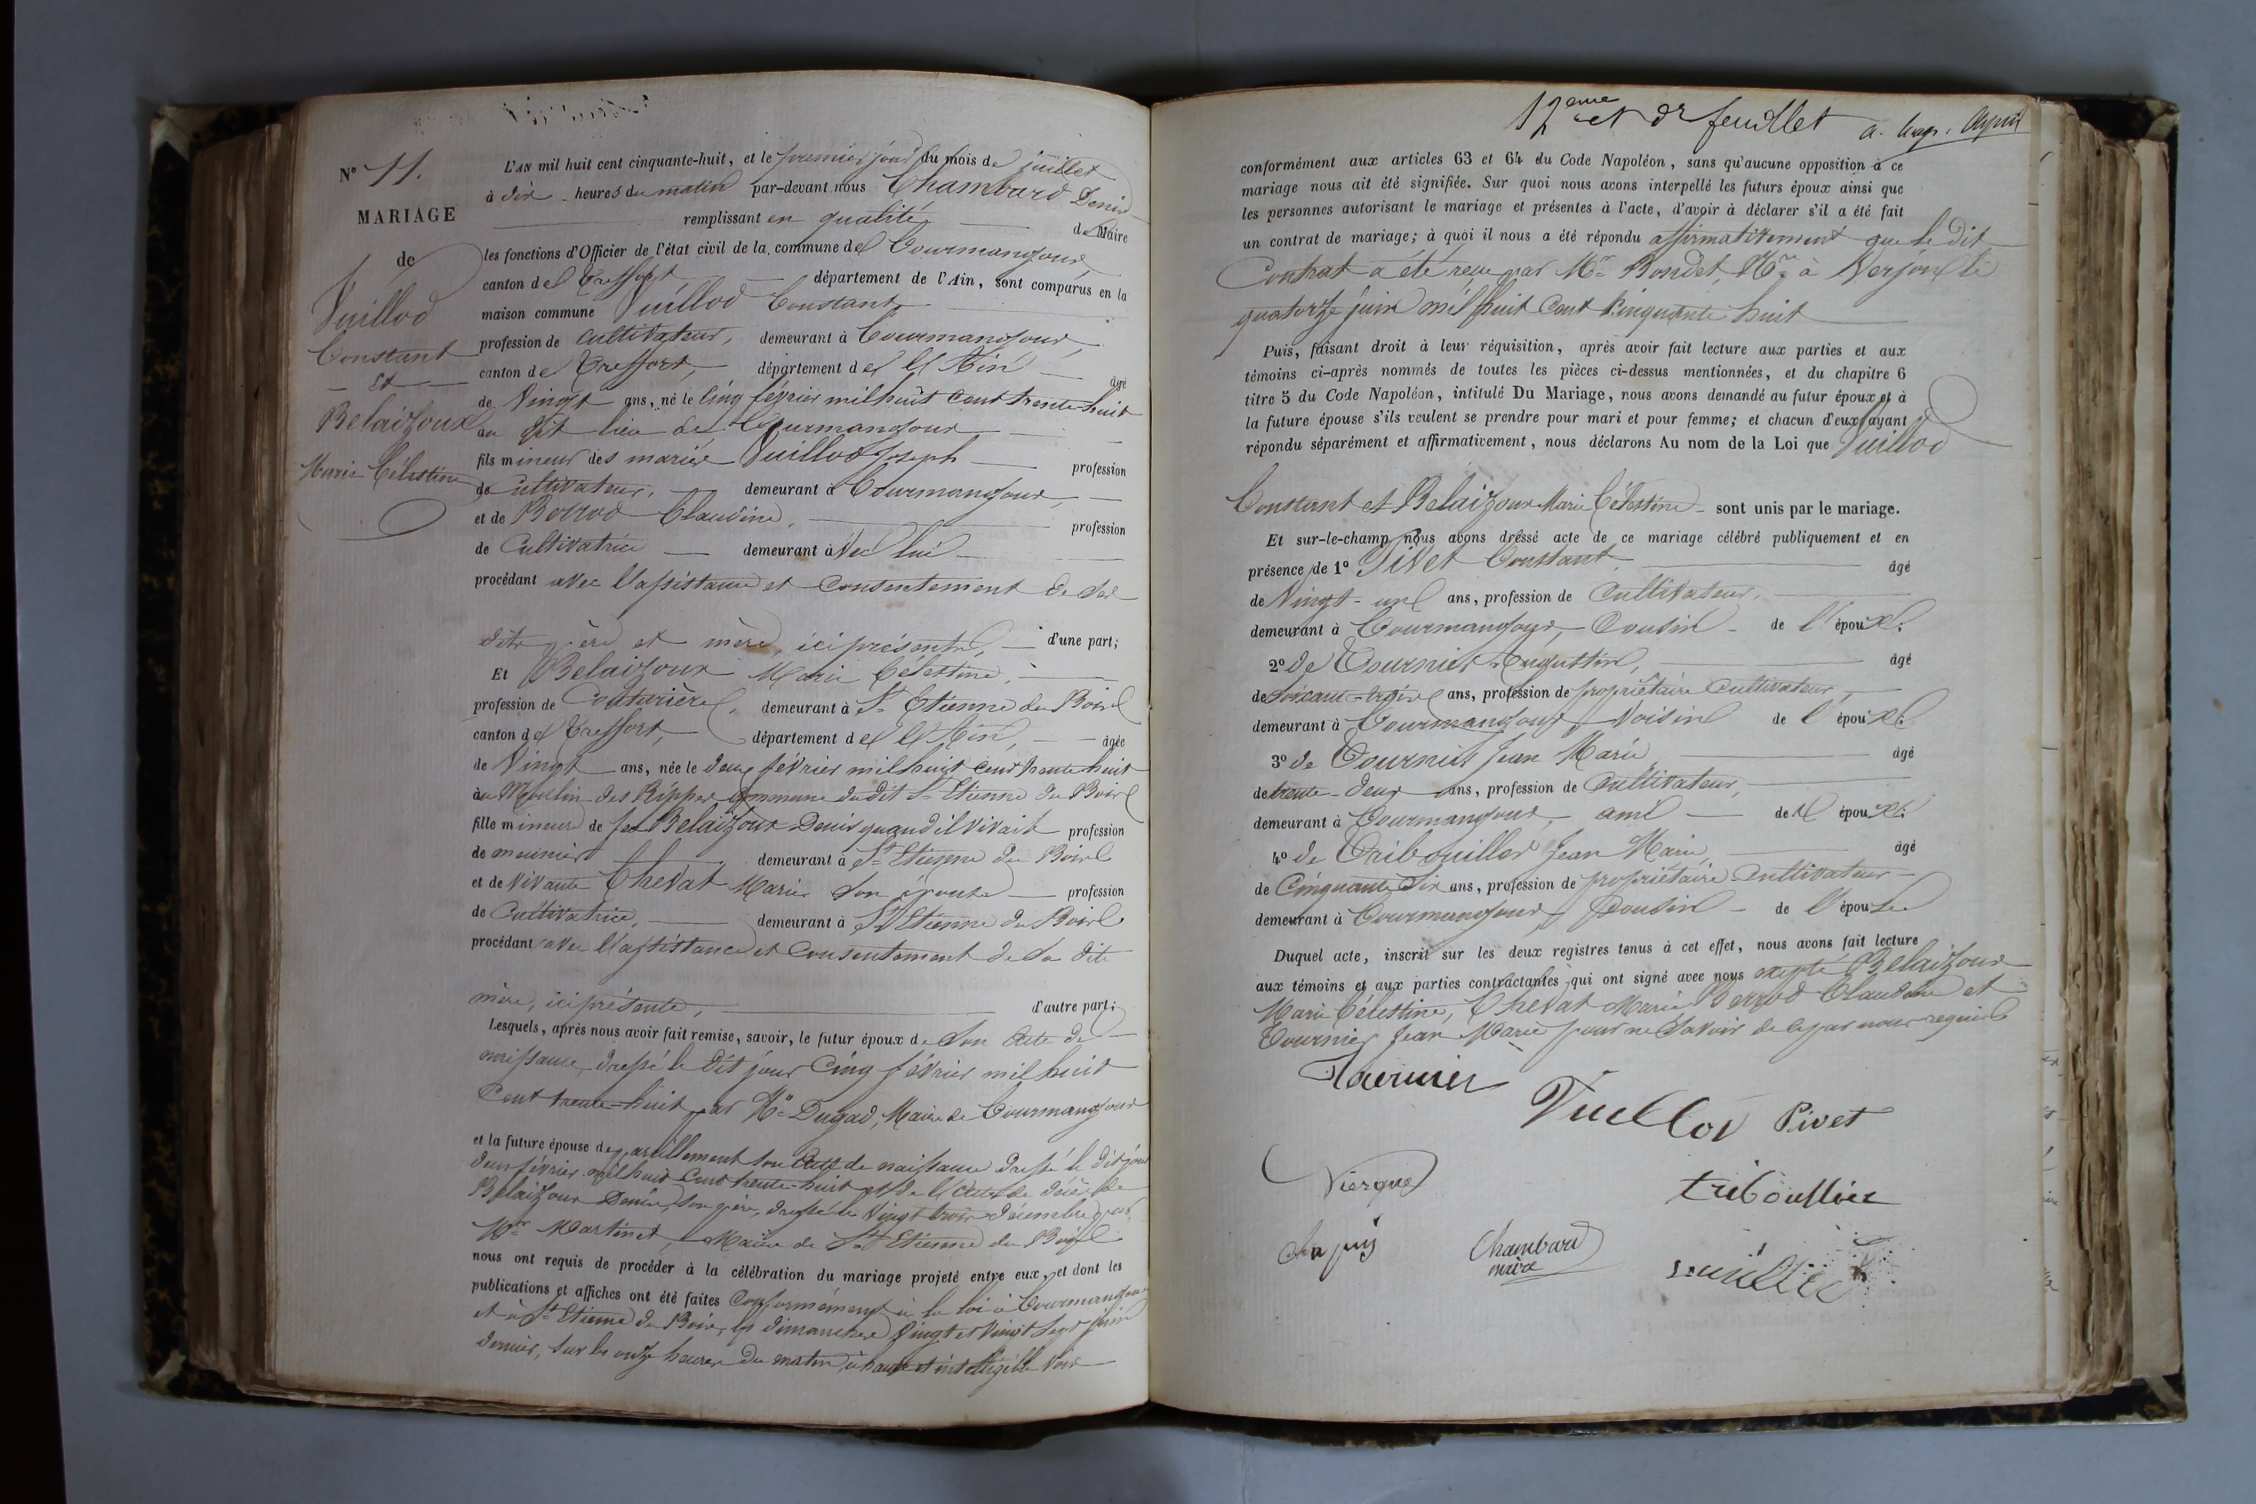 N° 11.
MARIAGE
de
Vuillod
Constant
et
Belaizoux
Marie Célestine
L'AN mil huit cent cinquante-huit, et le premier jour du mois de juillet
à dix heures du matin par-devant nous Chambard Denis
remplissant en qualité de Maire
les fonctions d'Officier de l'état civil de la commune de Courmangoux
canton de Treffort département de l'Ain, sont comparus en la
maison commune Vuillod Constant
profession de cultivateur, demeurant à Courmangoux,
canton de Treffort, département de l'Ain âgé
de Vingt ans, né le cinq février mil huit cent trente huit
au dit lieu de Courmangoux
fils mineur des mariés Vuillod Joseph profession
de Cultivateur, demeurant à Courmangoux,
et de Borrod Claudine, profession
de Cultivatrice demeurant avec lui
procédant avec l'assistance et consentement de ses
dits père et mère, ici présents, d'une part;
Et Belaizoux Marie Célestine,
profession de Couturière, demeurant à St Etienne du Bois
canton de Treffort, département de l'Ain, âgée
de Vingt ans, née le deux février mil huit cent trente huit
au Moulin des Rippes commune dudit St Etienne du Bois
fille mineure de feu Belaizoux Denis quand il vivait profession
de meunier demeurant à St Etienne du Bois
et de vivante Chevat Marie son épouse profession
de Cultivatrice, demeurant à St Etienne du Bois
procédant avec l'assistance et consentement de sa dite
mère, ici présente, d'autre part;
Lesquels, après nous avoir fait remise, savoir, le futur époux de son acte de
naissance, dressé le dit jour cinq février mil huit
cent trente-huit par Mr Dugad, Maire de Courmangoux
et la future épouse de pareillement son acte de naissance dressé le dit jour
deux février mil huit cent trente-huit et de l'acte de décès de
Belaizoux Denis, son père, dressé le vingt trois décembre par
Mr Martinet, Maire de St Etienne du Bois
nous ont requis de procéder à la célébration du mariage projeté entre eux, et dont les
publications et affiches ont été faites conformément à la loi à Courmangoux
et à St Etienne du Bois, les dimanches vingt et vingt sept juin
dernier, sur les onze heures du matin, à haute et intelligible voix
12eme et dr feuillet
conformément aux articles 63 et 64 du Code Napoléon, sans qu'aucune opposition à ce
mariage nous ait été signifiée. Sur quoi nous avons interpellé les futurs époux ainsi que
les personnes autorisant le mariage et présentes à l'acte, d'avoir à déclarer s'il a été fait
un contrat de mariage; à quoi il nous a été répondu affirmativement que le dit
Contrat a été reçu par Mr Bondet, Nre à Verjon le
quatorze juin mil huit cent cinquante huit
Puis, faisant droit à leur réquisition, après avoir fait lecture aux parties et aux
témoins ci-après nommés de toutes les pièces ci-dessus mentionnées, et du chapitre 6
titre 5 du Code Napoléon, intitulé Du Mariage, nous avons demandé au futur époux et à
la future épouse s'ils veulent se prendre pour mari et pour femme; et chacun d'eux ayant
répondu séparément et affirmativement, nous déclarons Au nom de la Loi que Vuillod
Constant et Belaizoux Marie Célestine sont unis par le mariage.
Et sur-le-champ nous avons dressé acte de ce mariage célébré publiquement et en
présence de 1° Pivet Constant, âgé
de Vingt-un ans, profession de Cultivateur,
demeurant à Courmangoux, Cousin de l'époux.
2° de Tournier Augustin, âgé
de soixante-trois ans, profession de propriétaire cultivateur,
demeurant à Courmangoux, Voisin de l'époux.
3° de Tournier Jean Marie âgé
de trente-deux ans, profession de Cultivateur,
demeurant à Courmangoux, ami de l'époux.
4° de Tribouiller Jean Marie âgé
de Cinquante six ans, profession de propriétaire Cultivateur
demeurant à Courmangoux, Cousin de l'épouse
Duquel acte, inscrit sur les deux registres tenus à cet effet, nous avons fait lecture
aux témoins et aux parties contractantes qui ont signé avec nous excepté Belaizoux
Marie Célestine, Chevat Marie, Borrod Claudine et
Tournier Jean Marie pour ne savoir de ce par nous requis
Tournier
Vuillod Pivet
Viergue
triboullier
Chapuis Chambard
maire